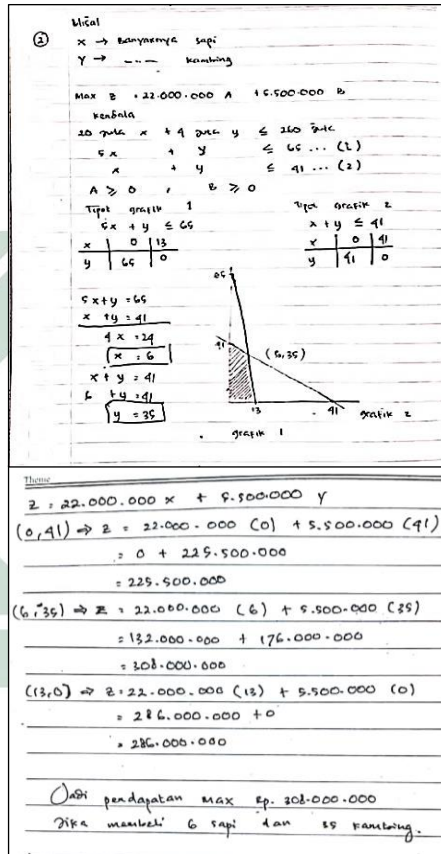 Misal
② x → Banyaknya sapi
Y → -- --- kambing
Max z = 22.000.000 A + 5.500.000 B
kendala
20 juta x + 4 juta y ≤ 260 juta
5x + y ≤ 65 ... (1)
x + y ≤ 41 ... (2)
A ≥ 0 , B ≥ 0
Tipot grafik 1
5x + y ≤ 65
x | 0 | 13
y | 65 | 0
Tipot Grafik 2
x + y ≤ 41
x | 0 | 41
y | 41 | 0
5x+y = 65
x +y = 41
4x = 24
x = 6
x + y = 41
6 +y = 41
y = 35
65
41
(6,35)
13
41
grafik 2
grafik 1
Theme
z = 22.000.000 x + 5.500.000 y
(0,41) ⇒ z = 22.000.000 (0) + 5.500.000 (41)
= 0 + 225.500.000
= 225.500.000
(6,35) ⇒ z = 22.000.000 (6) + 5.500.000 (35)
= 132.000.000 + 176.000.000
= 308.000.000
(13,0) ⇒ z = 22.000.000 (13) + 5.500.000 (0)
= 286.000.000 + 0
= 286.000.000
Jadi pendapatan max Rp. 308.000.000
Jika membeli 6 sapi dan 35 kambing.